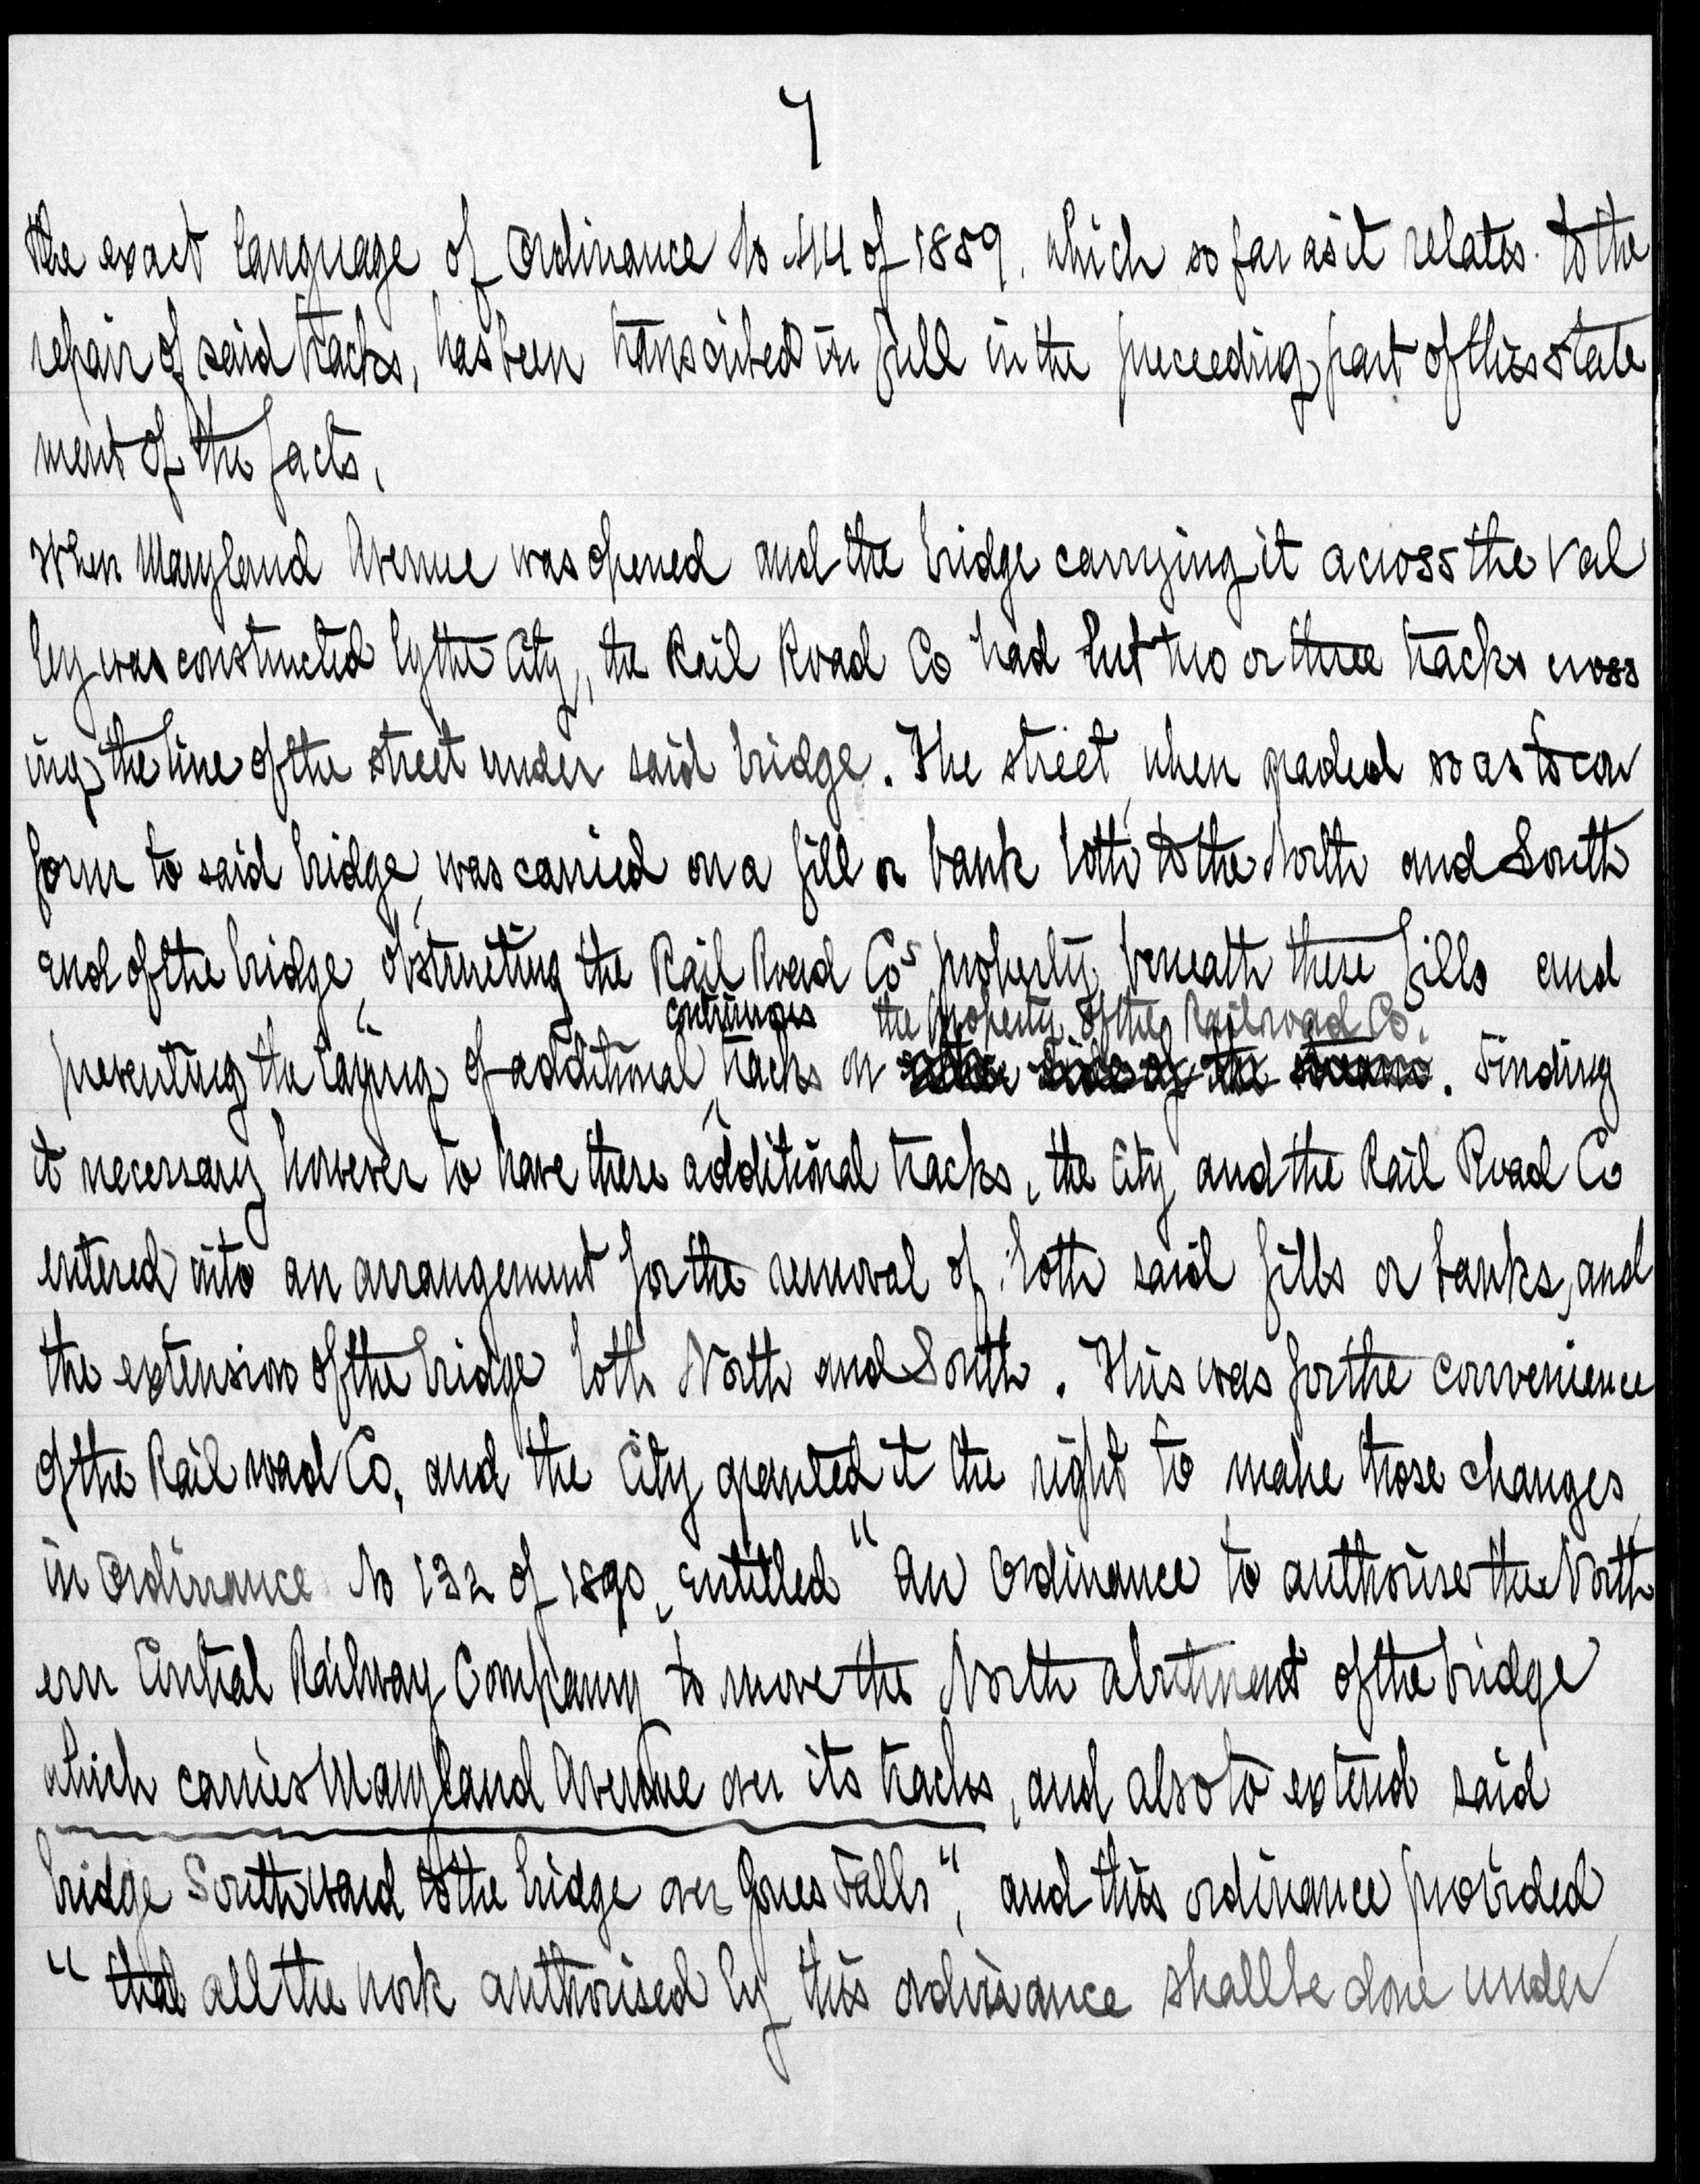 7
the exact language of Ordinance No 44 of 1889, which so far as it relates to the
repair of said tracks, has been transcribed in full in the preceeding part of this state
ment of the facts,
When Maryland Avenue was opened and the bridge carrying it across the val
ley was constructed by the City, the Rail Road Co had but two or three tracks cross
ing the line of the street under said bridge. The street, when graded so as to con
form to said bridge, was carried on a fill or bank both to the North and South
end of the bridge, obstructing the Rail Road Cos property beneath these fills and
continuous the property of the Railroad Co.
preventing the laying of additional tracks on either side of the . Finding
it necessary however to have these additional tracks, the City and the Rail Road Co
entered into an arrangement for the removal of both said fills or banks, and
the extension of the bridge both North and South. This was for the convenience
of the Rail road Co, and the City granted it the right to make those changes
in Ordinance No 132 of 1890, entitled "An Ordinance to authorise the North
ern Central Railway Company to move the North abutment of the bridge
which carries Maryland Avenue over its tracks, and also to extend said
bridge Southward to the bridge over Jones Falls", and this ordinance provided
"that all the work authorised by this ordinance shall be done under